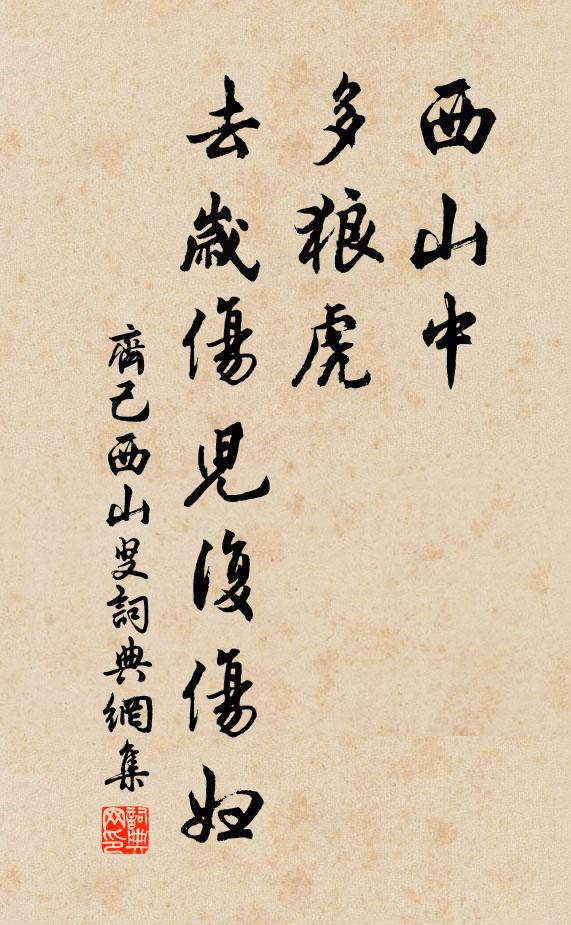 西山中
多狼虎
去歲傷兒復傷婦
齊己西山叟詞典網集
詞典网印